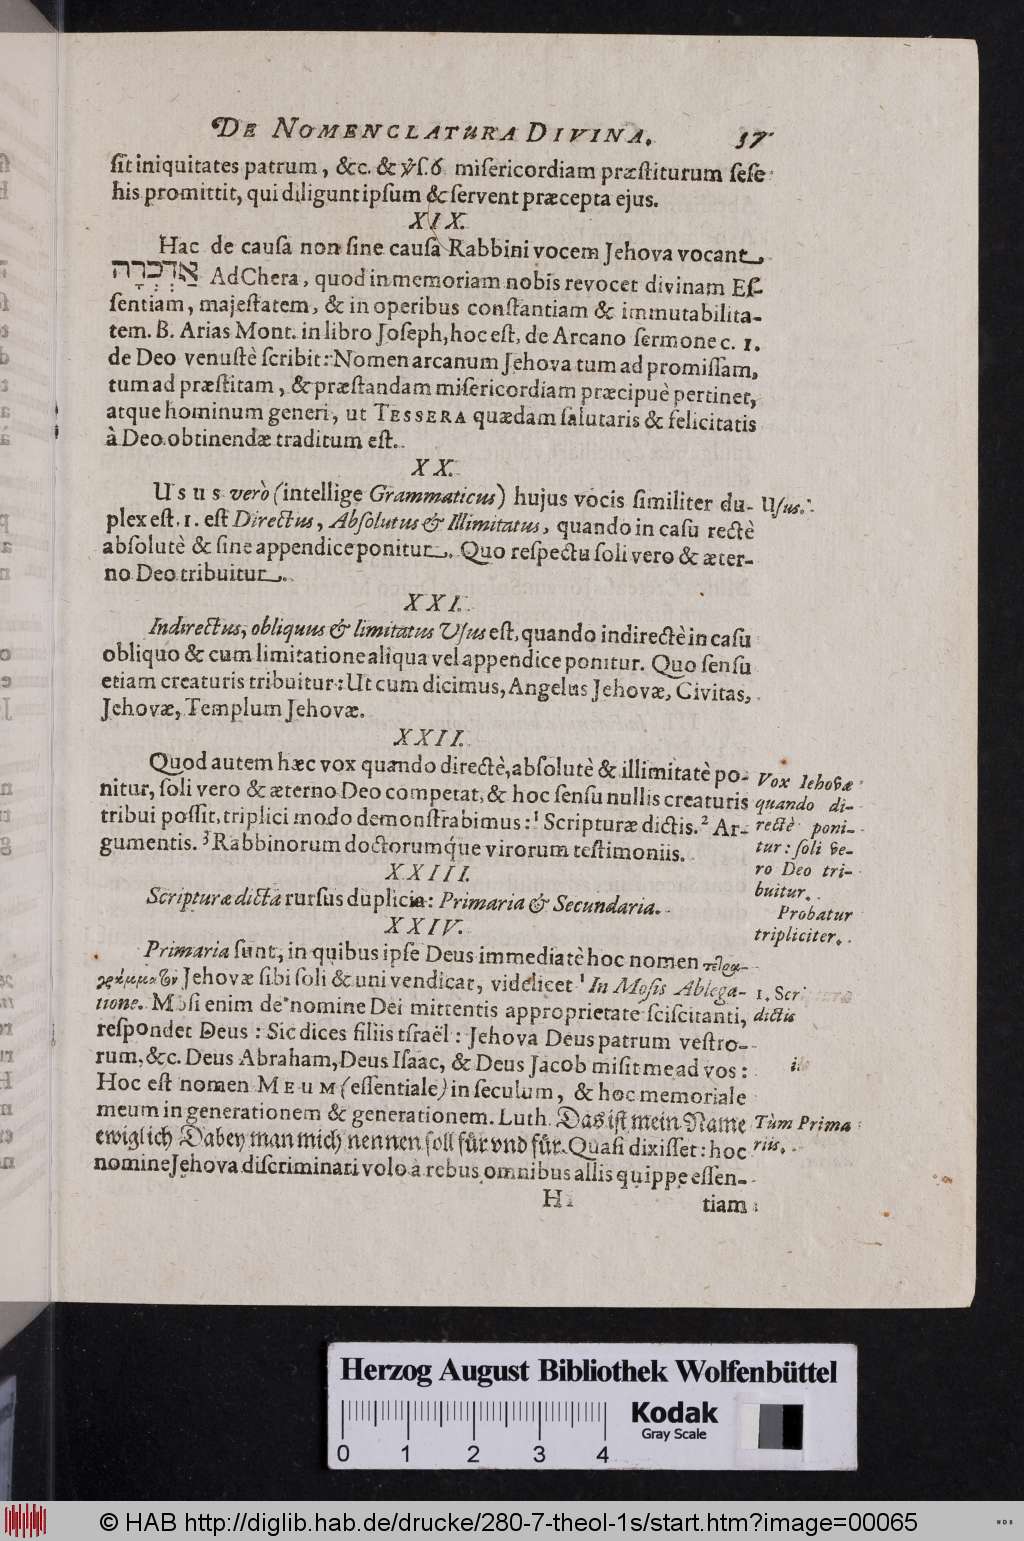 DE NOMENCLATURA DIVINA. 57
ſit iniquitates patrum, &c. & ℣ſ. 6 miſericordiam præſtiturum ſeſe
his promittit, qui diligunt ipſum & ſervent præcepta ejus.
XIX.
Hac de cauſa non ſine cauſâ Rabbini vocem Jehova vocant
אַדְכְּרָה AdChera, quod in memoriam nobis revocet divinam Eſ-
ſentiam, majeſtatem, & in operibus conſtantiam & immutabilita-
tem. B. Arias Mont. in libro Joſeph, hoc eſt, de Arcano ſermone c. 1.
de Deo venuſtè ſcribit: Nomen arcanum Jehova tum ad promiſſam,
tum ad præſtitam, & præſtandam miſericordiam præcipuè pertinet,
atque hominum generi, ut TESSERA quædam ſalutaris & felicitatis
à Deo obtinendæ traditum eſt.
XX.
Usus verò (intellige Grammaticus) hujus vocis ſimiliter du-
Uſus.
plex eſt. 1. eſt Directus, Abſolutus & Illimitatus, quando in caſu rectè
abſolutè & ſine appendice ponitur. Quo reſpectu ſoli vero & æter-
no Deo tribuitur.
XXI.
Indirectus, obliquus & limitatus Uſus eſt, quando indirectè in caſu
obliquo & cum limitatione aliqua vel appendice ponitur. Quo ſenſu
etiam creaturis tribuitur: Ut cum dicimus, Angelus Jehovæ, Civitas,
Jehovæ, Templum Jehovæ.
XXII.
Quod autem hæc vox quando directè, abſolutè & illimitatè po-
nitur, ſoli vero & æterno Deo competat, & hoc ſenſu nullis creaturis
tribui poſſit, triplici modo demonſtrabimus: ¹ Scripturæ dictis. ² Ar-
gumentis. ³ Rabbinorum doctorumq́ue virorum teſtimoniis.
Vox Iehovæ
quando di-
rectè poni-
tur: ſoli ve-
ro Deo tri-
buitur.
Probatur
tripliciter.
XXIII.
Scripturæ dicta rurſus duplicia: Primaria & Secundaria.
XXIV.
Primaria ſunt, in quibus ipſe Deus immediatè hoc nomen τετρα-
γράμματον Jehovæ ſibi ſoli & uni vendicat, videlicet ¹ In Moſis Ablega-
tione. Moſi enim de nomine Dei mittentis approprietate ſciſcitanti,
reſpondet Deus: Sic dices filiis Iſraël: Jehova Deus patrum veſtro-
rum, &c. Deus Abraham, Deus Iſaac, & Deus Jacob miſit me ad vos:
Hoc eſt nomen MEUM (eſſentiale) in ſeculum, & hoc memoriale
meum in generationem & generationem. Luth. Das iſt mein Name
ewiglich Dabey man mich nennen ſoll für vnd für. Quaſi dixiſſet: hoc
nomine Jehova diſcriminari volo à rebus omnibus allis quippe eſſen-
1. Scripturæ
dictis
Tùm Prima
riis.
H
tiam
Herzog August Bibliothek Wolfenbüttel
0 1 2 3 4
Kodak
Gray Scale
© HAB http://diglib.hab.de/drucke/280-7-theol-1s/start.htm?image=00065